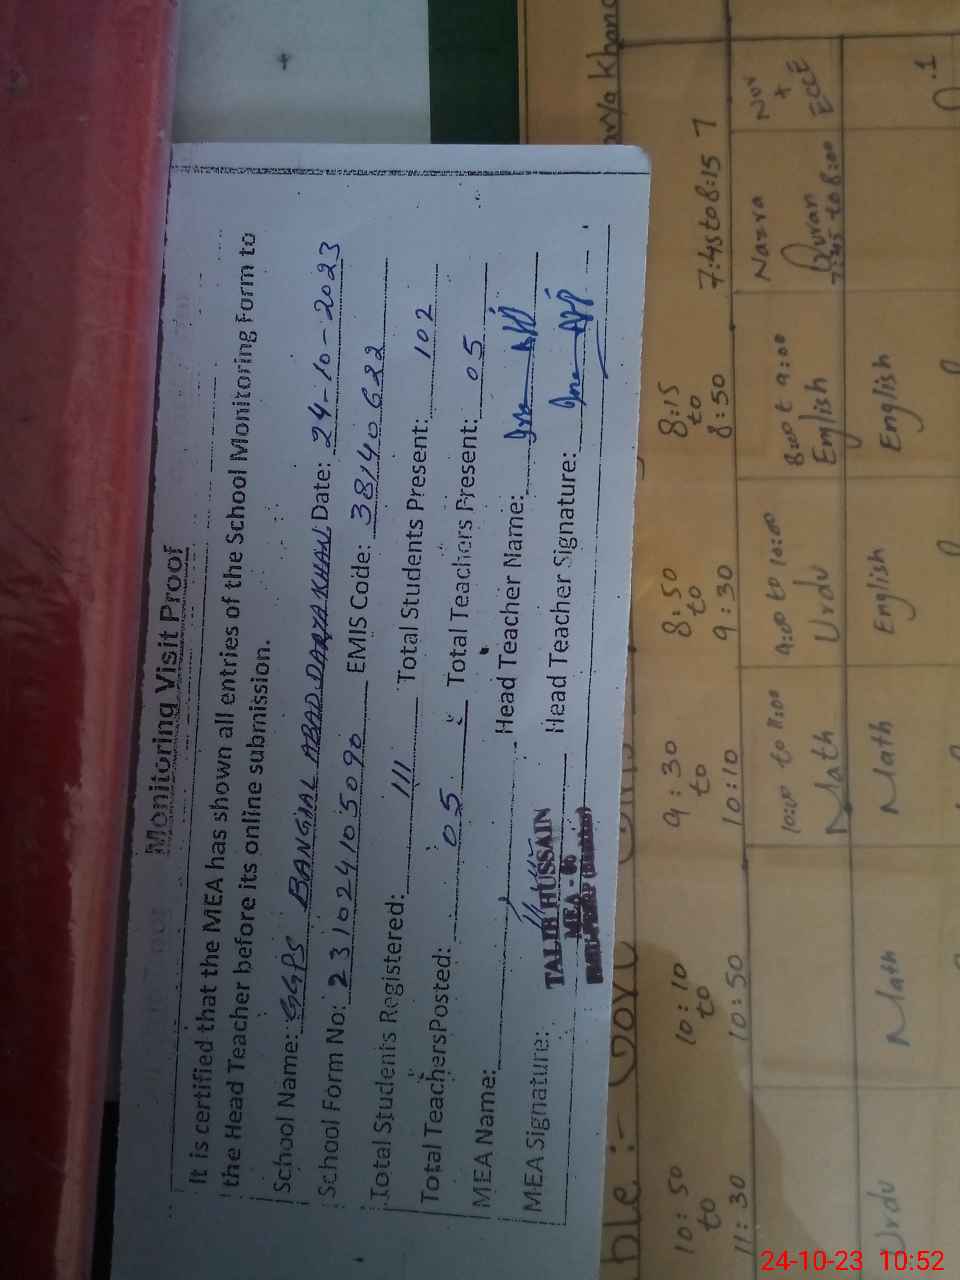 Monitoring Visit Proof
It is certified that the MEA has shown all entries of the School Monitoring Form to
the Head Teacher before its online submission.
School Name: GGPS BANGIAL ABAD DARYA KHAN Date: 24-10-2023
School Form No: 23102410 5090 EMIS Code: 38140622
Total Students Registered: 111 Total Students Present: 102
Total Teachers Posted: 05 Total Teachers Present: 05
MEA Name: Head Teacher Name:
MEA Signature: Head Teacher Signature:
TALIB HUSSAIN
MEA - 06
ble :- Govt
arya khan
10:50 to 11:30 10:10 to 10:50 9:30 to 10:10 8:50 to 9:30 8:15 to 8:50 7:45 to 8:15 7
10:00 to 11:00 9:00 to 10:00 8:00 t 9:00 Nazra Nov
Math Urdu English Quran + ECCE
7:45 to 8:00
Urdu Math Math English English
24-10-23 10:52